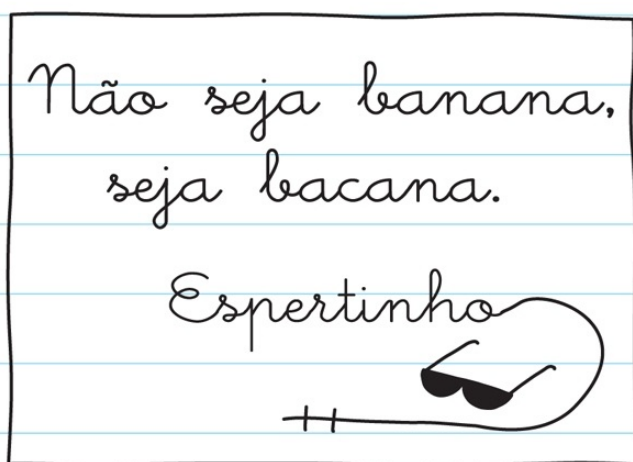 Não seja banana,
seja bacana.
Espertinho